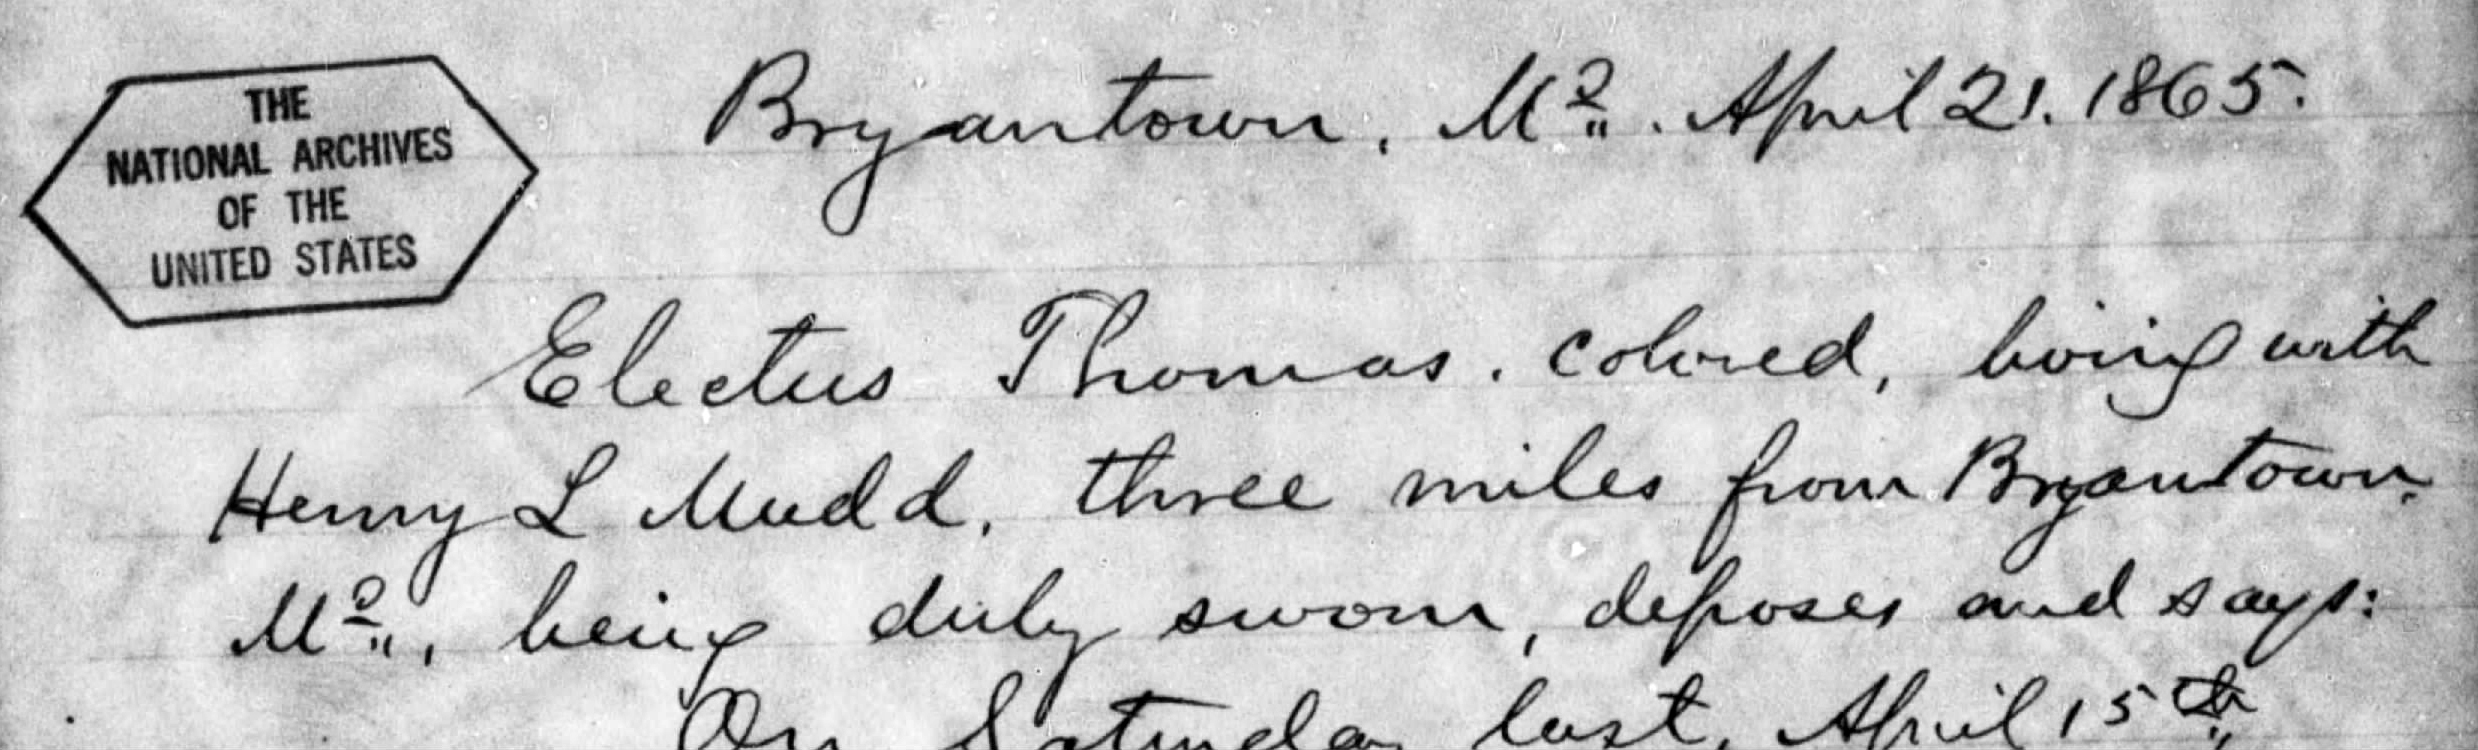 THE
NATIONAL ARCHIVES
OF THE
UNITED STATES
Bryantown, Md. April 21. 1865.
Electus Thomas. colored, living with
Henry L Mudd, three miles from Bryantown,
Md., being duly sworn, deposes and says:
On Saturday last, April 15th,